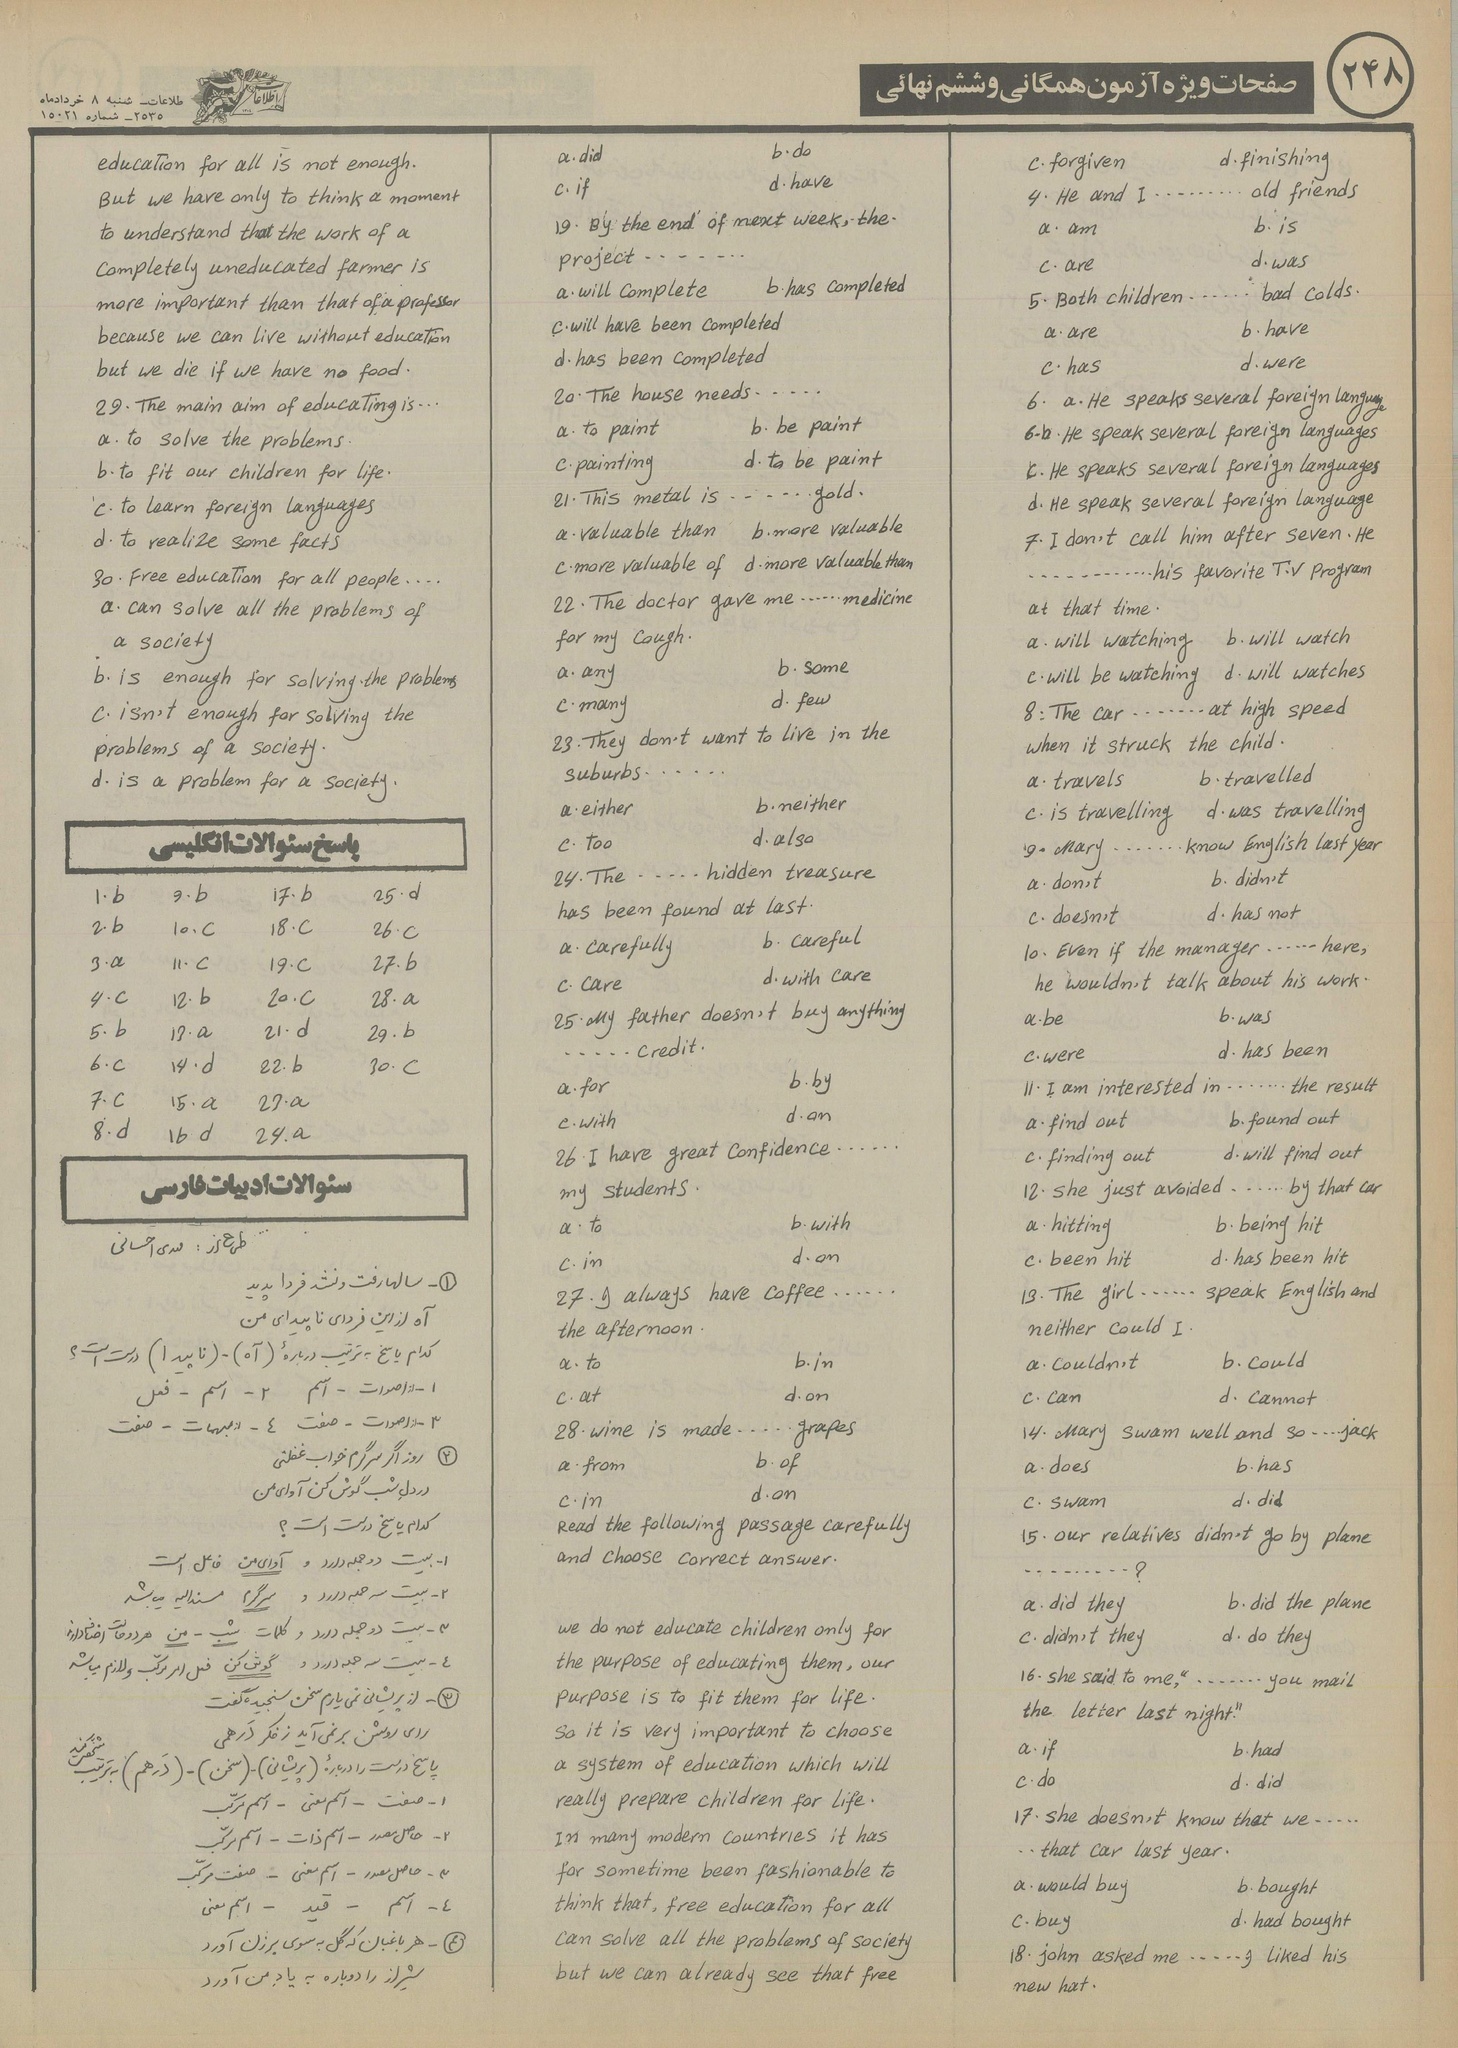 ۲۴۸
صفحات ویژه آزمون همگانی و ششم نهائی
اطلاعات
طلاعات_ شنبه ۸ خردادماه
۲۵۳۵_ شماره ۱۵۰۲۱
c. forgiven d. finishing
4. He and I --------- old friends
a. am b. is
c. are d. was
5. Both children ------ bad colds.
a. are b. have
c. has d. were
6. a. He speaks several foreign language
6-b. He speak several foreign languages
c. He speaks several foreign languages
d. He speak several foreign language
7. I don't call him after seven. He
------------ his favorite T.V program
at that time.
a. will watching b. will watch
c. will be watching d. will watches
8: The car ------- at high speed
when it struck the child.
a. travels b. travelled
c. is travelling d. was travelling
9. Mary ------- know English last year
a. don't b. didn't
c. doesn't d. has not
10. Even if the manager ------ here,
he wouldn't talk about his work.
a. be b. was
c. were d. has been
11. I am interested in ------- the result
a. find out b. found out
c. finding out d. will find out
12. she just avoided ------ by that car
a. hitting b. being hit
c. been hit d. has been hit
13. The girl ------ speak English and
neither could I.
a. couldn't b. could
c. can d. cannot
14. Mary swam well and so ---- jack
a. does b. has
c. swam d. did
15. our relatives didn't go by plane
---------?
a. did they b. did the plane
c. didn't they d. do they
16. she said to me, " ------- you mail
the letter last night."
a. if b. had
c. do d. did
17. she doesn't know that we -----
-- that car last year.
a. would buy b. bought
c. buy d. had bought
18. john asked me ----- I liked his
new hat.
a. did b. do
c. if d. have
19. By the end of next week, the
project -------
a. will complete b. has completed
c. will have been completed
d. has been completed
20. The house needs -----
a. to paint b. be paint
c. painting d. to be paint
21. This metal is ------ gold.
a. valuable than b. more valuable
c. more valuable of d. more valuable than
22. The doctor gave me ------ medicine
for my cough.
a. any b. some
c. many d. few
23. They don't want to live in the
suburbs ------
a. either b. neither
c. too d. also
24. The ----- hidden treasure
has been found at last.
a. carefully b. careful
c. care d. with care
25. My father doesn't buy anything
----- credit.
a. for b. by
c. with d. on
26. I have great confidence ------
my students.
a. to b. with
c. in d. on
27. I always have coffee ------
the afternoon.
a. to b. in
c. at d. on
28. wine is made ----- grapes
a. from b. of
c. in d. on
Read the following passage carefully
and choose correct answer.
we do not educate children only for
the purpose of educating them, our
purpose is to fit them for life.
So it is very important to choose
a system of education which will
really prepare children for life.
In many modern countries it has
for sometime been fashionable to
think that, free education for all
can solve all the problems of society
but we can already see that free
education for all is not enough.
But we have only to think a moment
to understand that the work of a
completely uneducated farmer is
more important than that of a professor
because we can live without education
but we die if we have no food.
29. The main aim of educating is ...
a. to solve the problems.
b. to fit our children for life.
c. to learn foreign languages
d. to realize some facts
30. Free education for all people ....
a. can solve all the problems of
a society
b. is enough for solving the problems
c. isn't enough for solving the
problems of a society.
d. is a problem for a society.
پاسخ سئوالات انگلیسی
1. b 9. b 17. b 25. d
2. b 10. c 18. c 26. c
3. a 11. c 19. c 27. b
4. c 12. b 20. c 28. a
5. b 13. a 21. d 29. b
6. c 14. d 22. b 30. c
7. c 15. a 23. a
8. d 16 d 24. a
سئوالات ادبیات فارسی
طرح از :
۱- سالها رفت و نشد فردا پدید
آه از این فردای ناپیدای من
کدام پاسخ به ترتیب دربارهٔ (آه) - (ناپیدا) درست است؟
۱- از اصوات - اسم ۲- اسم - فعل
۳- از اصوات - صفت ٤- از مبهمات - صفت
۲ روز اگر سرگرم خواب غفلتی
در دل شب گوش کن آوای من
کدام پاسخ درست است؟
۱- بیت دو جمله دارد و آوای من فاعل است
۲- بیت سه جمله دارد و سرگرم مسندالیه میباشد
۳- بیت دو جمله دارد و کلمات شب - من هر دو حالت اضافه دارند
٤- بیت سه جمله دارد و گوش کن فعل امر مرکب و لازم میباشد
۳- از پریشانی نمی یارم سخن سنجیده گفت
رای روشن بر نمی آید ز فکر درهمی
پاسخ درست را دربارهٔ (پریشانی) - (سخن) - (درهم) به ترتیب مشخص کنید
۱- صفت - اسم معنی - اسم مرکب
۲- حاصل مصدر - اسم ذات - اسم مرکب
۳- حاصل مصدر - اسم معنی - صفت مرکب
٤- اسم - قید - اسم معنی
۴- هر باغبان که گل به سوی برزن آورد
شیراز را دوباره به یاد من آورد